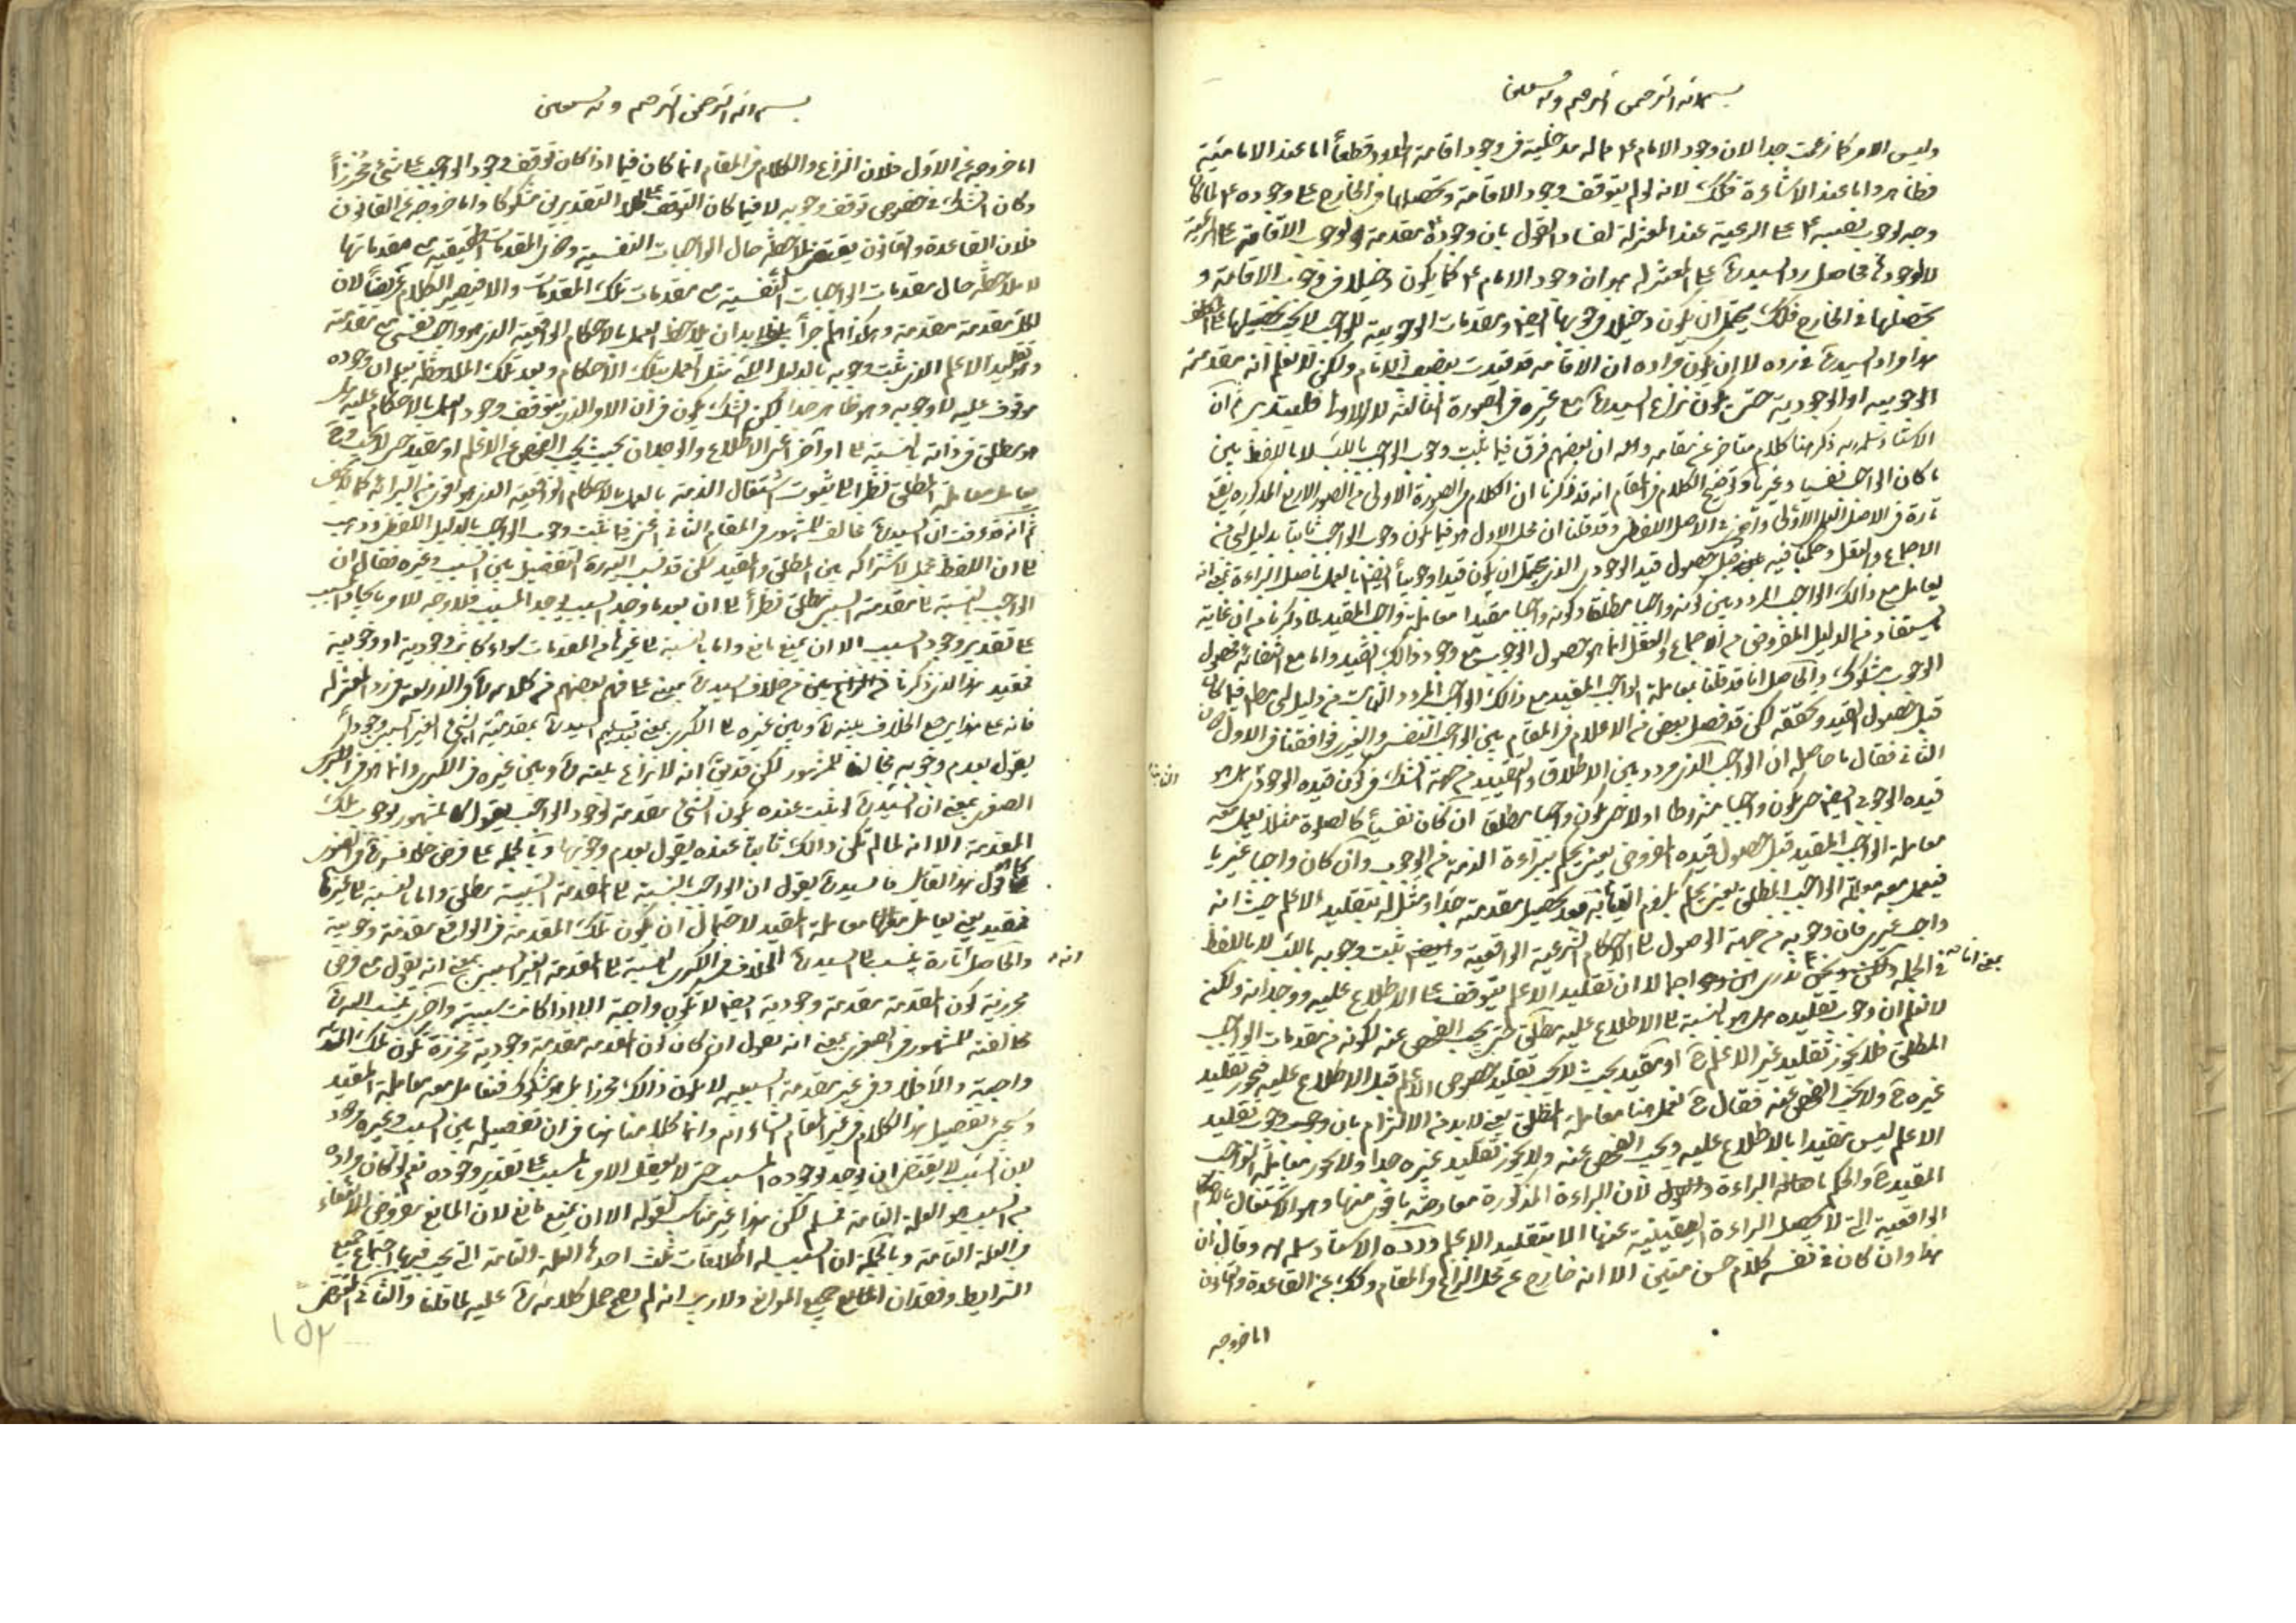 بسم الله الرحمن الرحيم وبه نستعين
وليس الامر كما زعمت جدا لان وجود الامام ع مما له مدخلية في وجود اقامة الحدود قطعاً اما عند الامامية
فظاهر واما عند الاشاعرة فكذلك لانه لو لم يتوقف وجود الاقامة وتحصيلها في الخارج على وجوده ع لما كان
وجه لوجوب نصبه ع على الرعية عند المعتزلة لفساد القول بان وجوده مقدمة لوجوب الاقامة على الرعية
لا لوجودها فحاصل رد السيد على المعتزلة هو ان وجود الامام ع كما يكون دخيلا في وجود الاقامة و
تحصيلها في الخارج فكذلك يحتمل ان يكون دخيلا في وجوبها ايضا ومقدمات الوجوبية للواجب لا يجب تحصيلها على
هذا مراد السيد في رده لا ان يكون مراده ان الاقامة قد قيدت بنصب الامام ولكن لا نعلم انه مقدمة
الوجوبية او الوجودية حتى يكون نزاع السيد مع غيره في الصورة الثالثة لا الاولى فليتدبر ثم ان
الاستاد سلمه الله ذكر هنا كلام متاخر عن مقامه وهو ان بعضهم فرق فيما يثبت وجوب الواجب باللب لا باللفظ بين
ما كان الواجب نفسيا وغيريا وتوضيح الكلام في المقام انه قد ذكرنا ان الكلام في الصورة الاولى من الصور الاربع المذكورة يقع
تارة في الاصل العملي الاولى واخرى في الاصل اللفظي وقد قلنا ان محل الاول هو فيما يكون وجوب الواجب ثابتا بدليل لبي من
الاجماع والعقل وحكمنا فيه قبل حصول قيد الوجودي الذي يحتمل ان يكون قيدا وجوبياً ايضا بالعمل باصل البراءة بمعنى انه
يعامل مع ذلك الواجب المردد بين كونه واجبا مطلقا وكونه واجبا مقيدا معاملة واجب المقيد لما ذكرنا من ان غاية
يستفاد من الدليل المفروض من الاجماع والعقل انما هو حصول الوجوب مع وجود ذلك القيد واما مع انتفائه فحصول
الوجوب مشكوك والحاصل انا قد قلنا بمعاملة الواجب المقيد مع ذلك الواجب المردد الثابت من دليل لبي مطلقا
قبل حصول القيد وتحققه لكن قد فصل بعض من الاعلام في المقام بين الواجب النفسي والغيري فوافقنا في الاول دون
الثاني فقال ما حاصله ان الواجب الذي مردد بين الاطلاق والتقييد من جهة الشك في كون قيده الوجودي هل هو
قيده الوجوبي ايضا حتى يكون واجبا مشروطا اولا حتى يكون واجبا مطلقا ان كان نفسياً كالصلوة مثلا يعمل معه
معاملة الواجب المقيد قبل حصول قيده المفروض يعني يحكم ببراءة الذمة من الوجوب وان كان واجبا غيريا
فيعمل معه معاملة الواجب المطلق يعني يحكم بلزوم اتيانه بعد تحصيل مقدمته جدا ومثل له بتقليد الاعلم حيث انه
واجب غيري فان وجوبه من جهة الوصول الى الاحكام الشرعية الواقعية وايضا ثبت وجوبه باللب لا باللفظ
في الجملة ولكن اجمالا ان تقليد الاعلم يتوقف على الاطلاع عليه ووجدانه ولكنه
لا نعلم ان وجوب تقليده هل هو بالنسبة الى الاطلاع عليه مطلق حتى يجب الفحص عنه لكونه من مقدمات الواجب
المطلق فلا يجوز تقليد غير الاعلم ح او مقيد بحيث لا يجب تقليد خصوص الاعلم قبل الاطلاع عليه فيجوز تقليد
غيره ح ولا يجب الفحص عنه فقال ح نعمل هنا معاملة المطلق يعني لا بد من الالتزام بان وجوب تقليد
الاعلم ليس مقيدا بالاطلاع عليه ويجب الفحص عنه ولا يجوز تقليد غيره جدا ولا يجوز معاملة الواجب
المقيد ح والحكم باصالة البراءة لان البراءة المذكورة معارضة باقوى منها وهو الاشتغال بالاحكام
الواقعية التي لا يحصل البراءة اليقينية عنها الا بتقليد الاعلم ورده الاستاد سلمه الله وقال ان
هذا وان كان في نفسه كلام حسن متين الا انه خارج عن محل النزاع والمقام وكذلك عن القاعدة والقانون
اما خروجه
بسم الله الرحمن الرحيم وبه نستعين
اما خروجه عن الاول فلان النزاع والكلام في المقام انما كان فيما اذا كان توقف وجود الواجب على شيء محرزاً
وكان الشك في خصوص توقف وجوبه لا فيما كان التوقف على كلا التقديرين مشكوكا واما خروجه عن القانون
فلان القاعدة والقانون يقتضي ملاحظة حال الواجبات النفسية وهي المقدمات الحقيقية مع مقدماتها
لا ملاحظة حال مقدمات الواجبات النفسية مع مقدمات تلك المقدمات والا فيصير الكلام عريضاً لان
لكل مقدمة مقدمة وهكذا هلم جراً فلا بد ان يلاحظ العمل بالاحكام الواقعية الذي هو واجب نفسي مع مقدمته
وهو تقليد الاعلم الذي ثبت وجوبه بالدليل اللبي مثل العمل بتلك الاحكام وبعد تلك الملاحظة نعلم ان وجوده
موقوف عليه لا وجوبه وهو ظاهر جدا لكن الشك يكون في ان الامر الذي يتوقف وجود العمل بالاحكام عليه هل
هو مطلق في ذاته بالنسبة الى امر آخر اعني الاطلاع والوجدان بحيث يجب الفحص عن الاعلم او مقيد حتى لا يجب فح
يعامل معاملة المطلق نظرا الى ثبوت اشتغال الذمة بالعمل بالاحكام الواقعية الذي هو اقوى من البرائة كما لا يخفى
ثم انه قد عرفت ان السيد مخالف للمشهور في المقام الثاني اعني فيما ثبت وجوب الواجب بالدليل اللفظي وذهب
الى ان اللفظ مجمل لاشتراكه بين المطلق والمقيد لكن قد نسب اليه التفصيل بين السبب وغيره فقال ان
الواجب بالنسبة الى مقدمة السببي مطلق نظراً الى ان بعد ما وجد السبب يوجد المسبب فلا وجه للامر بايجاد المسبب
على تقدير وجود السبب الا ان يمنع مانع واما بالنسبة الى غيرها من المقدمات سواء كانت وجودية او وجوبية
فمقيد هذا الذي ذكرنا من خلاف السيد مبني على فهم بعضهم من كلامه والا رده المعتزلة
فانه على هذا يرجع الخلاف بينه وبين غيره الى الكبرى بمعنى تسليم السيد بمقدمية الشيء الغير السببي وجوداً
يقول بعدم وجوبه مخالفا للمشهور لكن قد يق انه لا نزاع بينه وبين غيره في الكبرى وانما هو في الصغرى
الصغرى بمعنى ان السيد لو ثبت عنده كون الشيء مقدمة لوجود الواجب يقول كالمشهور بوجوب تلك
المقدمة الا انه لما لم تكن ذلك ثابتا عنده يقول بعدم وجوبها وبالجملة على فرض خلاف السيد في الصغرى
كما هو قول هذا القائل فالسيد يقول ان الواجب بالنسبة الى المقدمة السببية مطلق واما بالنسبة الى غيرها
فمقيد يعني يعامل معها معاملة المقيد لاحتمال ان يكون تلك المقدمة في الواقع مقدمة وجوبية
والحاصل انه تارة ينسب الى السيد الخلاف في الكبرى بالنسبة الى المقدمة الغير السببي بمعنى انه يقول مع فرض
محرزية كون المقدمة مقدمة وجودية ايضا لا تكون واجبة الا اذا كانت سببية واخرى ينسب اليه
مخالفته للمشهور في الصغرى بمعنى انه يقول ان كان كون المقدمة مقدمة وجودية محرزة تكون تلك المقدمة
واجبة والا فلا وفي غير مقدمة السببية لا يكون ذلك محرزا بل هو مشكوك فنعامل معه معاملة المقيد
وسيجيء تفصيل هذا الكلام في غير المقام انشاء الله وانما كلامنا هنا في ان تفصيله بين السبب وغيره مردود
لان السبب لا يقتضي ان يوجد بوجوده المسبب حتى لا يعقل الامر بالمسبب على تقدير وجوده نعم لو كان مراده
من السبب هو العلة التامة فمسلم لكن هذا غير مناسب لقوله الا ان يمنع مانع لان المانع مفروض الانتفاء
في العلة التامة وبالجملة ان السبب له اطلاقات ثلث احدها العلة التامة التي يجب فيها اجتماع جميع
الشرايط وفقدان جميع الموانع ولا ريب انه لم يصح حمل كلامه عليه لما قلنا والثاني المقتضي
١٥٢